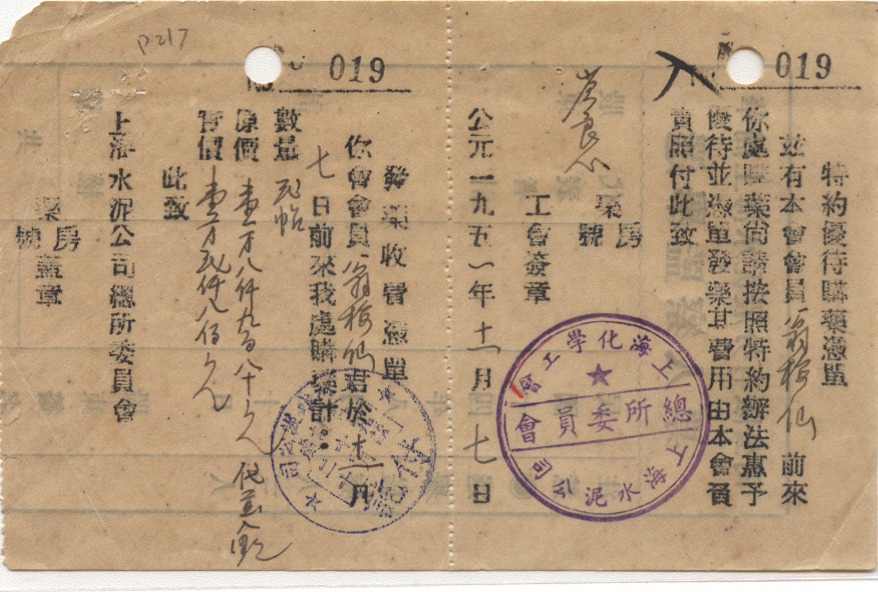 019
特約優待購藥憑單
茲有本會會員翁梅仙前來
你處購藥尚請按照特約辦法惠予
優待並憑單發藥其費用由本會負
責照付此致
藥房
號
工會簽章
公元一九五一年十一月七日
上海化學工會
總所委員會
上海水泥公司
P217
019
發藥收費憑單
你會會員翁梅仙君於十一月
七日前來我處購藥計:
數量 帖
原價 壹万八仟九百八十元
實價 壹万仟八佰元
此致
上海水泥公司總所委員會
藥房
號蓋章
付訖